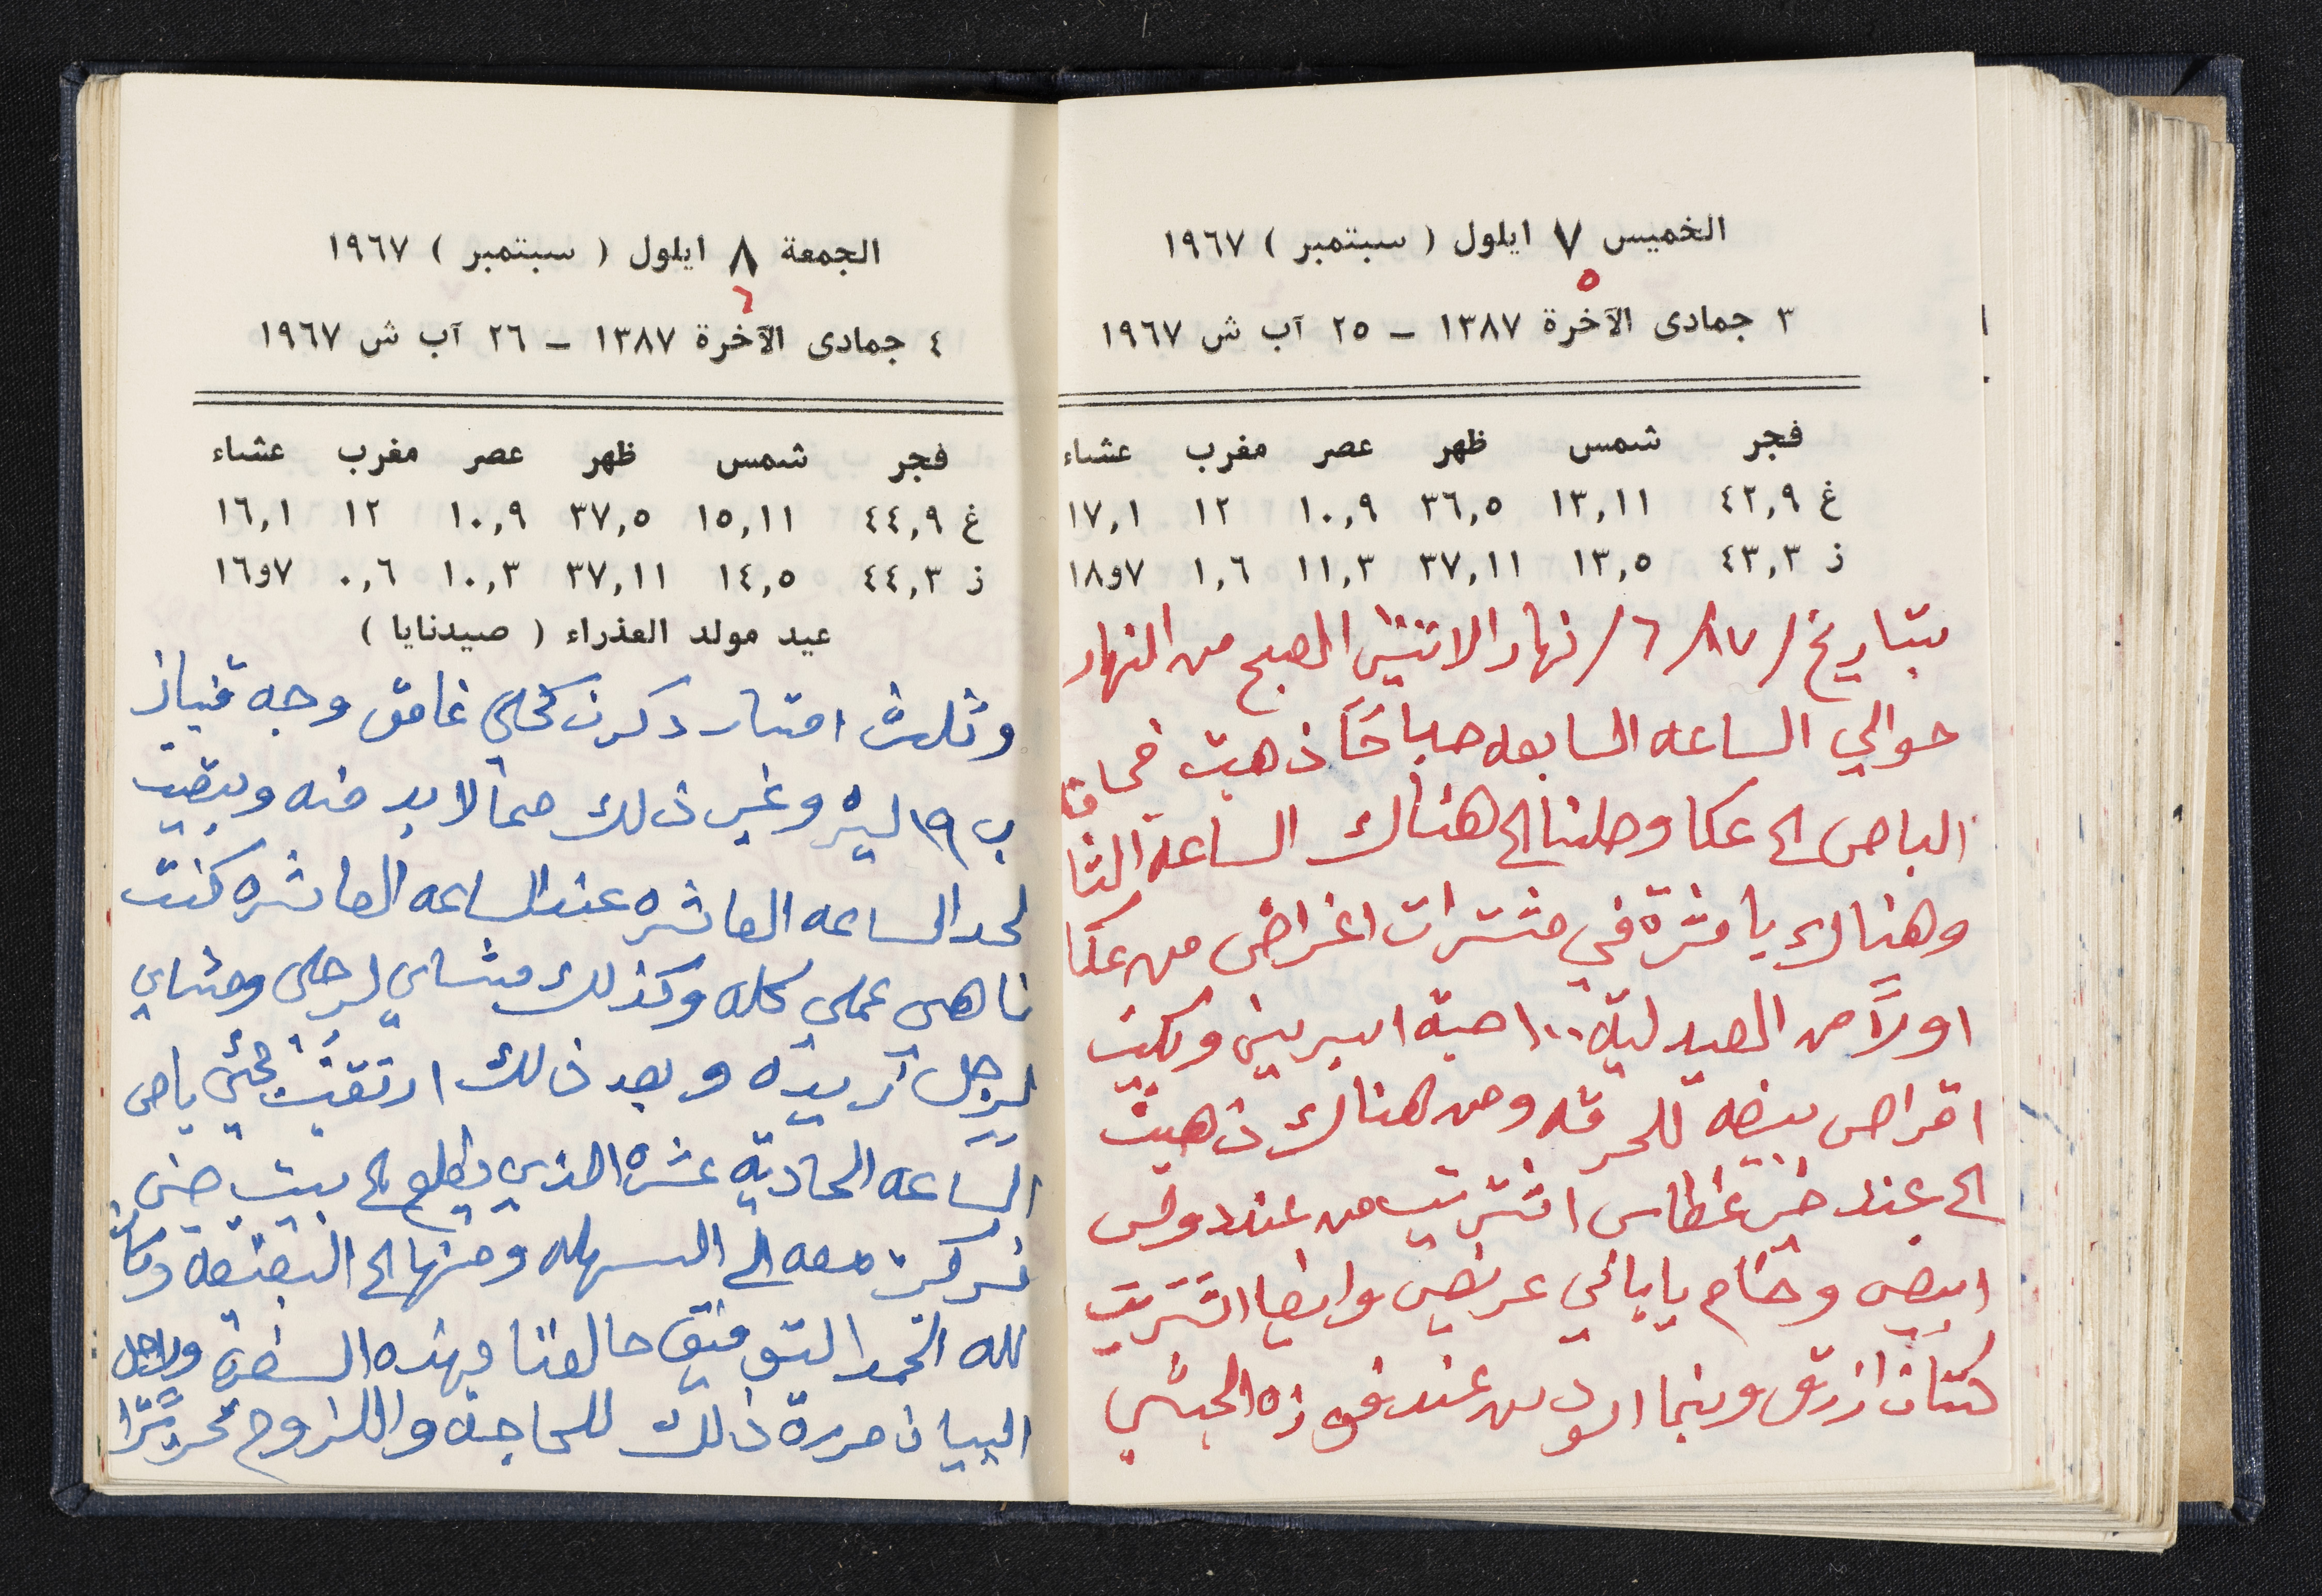 الخميس ٧ ايلول ( سبتمبر ) ١٩٦٧
٥
٣ جمادى الآخرة ١٣٨٧ – ٢٥ آب ش ١٩٦٧
فجر شمس ظهر عصر مغرب عشاء
غ ٤٢,٩ ١٣,١١ ٣٦,٥ ١٠,٩ ١٢ ١٧,١
ز ٤٣,٣ ١٣,٥ ٣٧,١١ ١١,٣ ١,٦ ٧و١٨
بتاريخ / ٨٧/ ٦/ نهار الاثنين الصبح من النهار
حوالي الساعه السابعه صباحًا ذهبت في
الباص الى عكا وصلنا الى هناك الساعة الثا
وهناك باشرة في مشترات اغراض من عكا
اولاً من الصيدلية ١٠٠ حبة اسبرين وبكيت
اقراص بيضه للحرقه ومن هناك ذهبت
الى عند غطاس اشتريت من عنده
ابيض وخام ياباني عريض وايضا اشتريت
كتان ازرق من عند فوزه الحبشي
الجمعة ٨ ايلول ( سبتمبر ) ١٩٦٧
٦
٤ جمادى الآخرة ١٣٨٧ – ٢٦ آب ش ١٩٦٧
فجر شمس ظهر عصر مغرب عشاء
غ ٤٤,٩ ١٥,١١ ٣٧,٥ ١٠,٩ ١٢ ١٦,١
ز ٤٤,٣ ١٤,٥ ٣٧,١١ ١٠,٣ ٠,٦ ٧و١٦
عيد مولد العذراء ( صيدنايا )
وثلث امتار دكرن كحلي غامق وجه قنباز
ب ١٩ ليره وغير ذلك مما لابد منه وبقيت
لحد الساعه العاشره عند الساعه العاشره كنت
ناهي عملي كله وكذلك مشاي لرجلي ومشاي
لرجل اريده وبعد ذلك ارتقبت مجيئ باص
الساعه الحادية عشره الذي يطلع الى بيت جن
فركبت معه الى السهله ومنها الى البقيعه وكان
لله الحمد التوفيق حالفنا بهذه السفرة ولاجل
البيان حررة ذلك للحاجة واللزوم تحريرًا